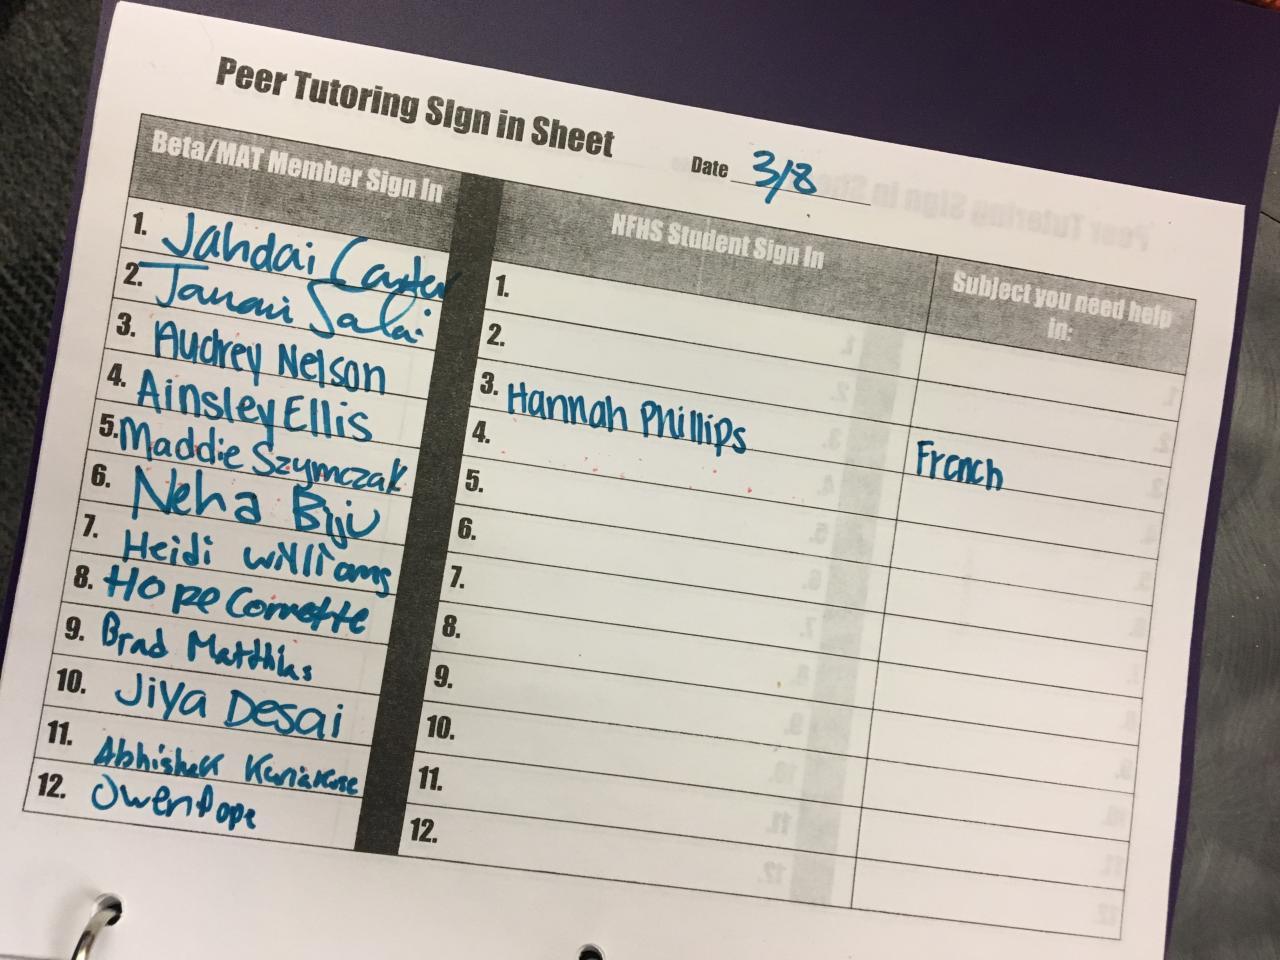 Peer Tutoring Sign in Sheet
Date 3/8
Beta/MAT Member Sign In
NFHS Student Sign In
Subject you need help in:
1. Jahdai Carter
2. Janani Salai
3. Audrey Nelson
4. Ainsley Ellis
5. Maddie Szymczak
6. Neha Biju
7. Heidi Williams
8. Hope Cornette
9. Brad Matthias
10. Jiya Desai
11. Abhishek
12. Owen Pope
1.
2.
3. Hannah Phillips
French
4.
5.
6.
7.
8.
9.
10.
11.
12.